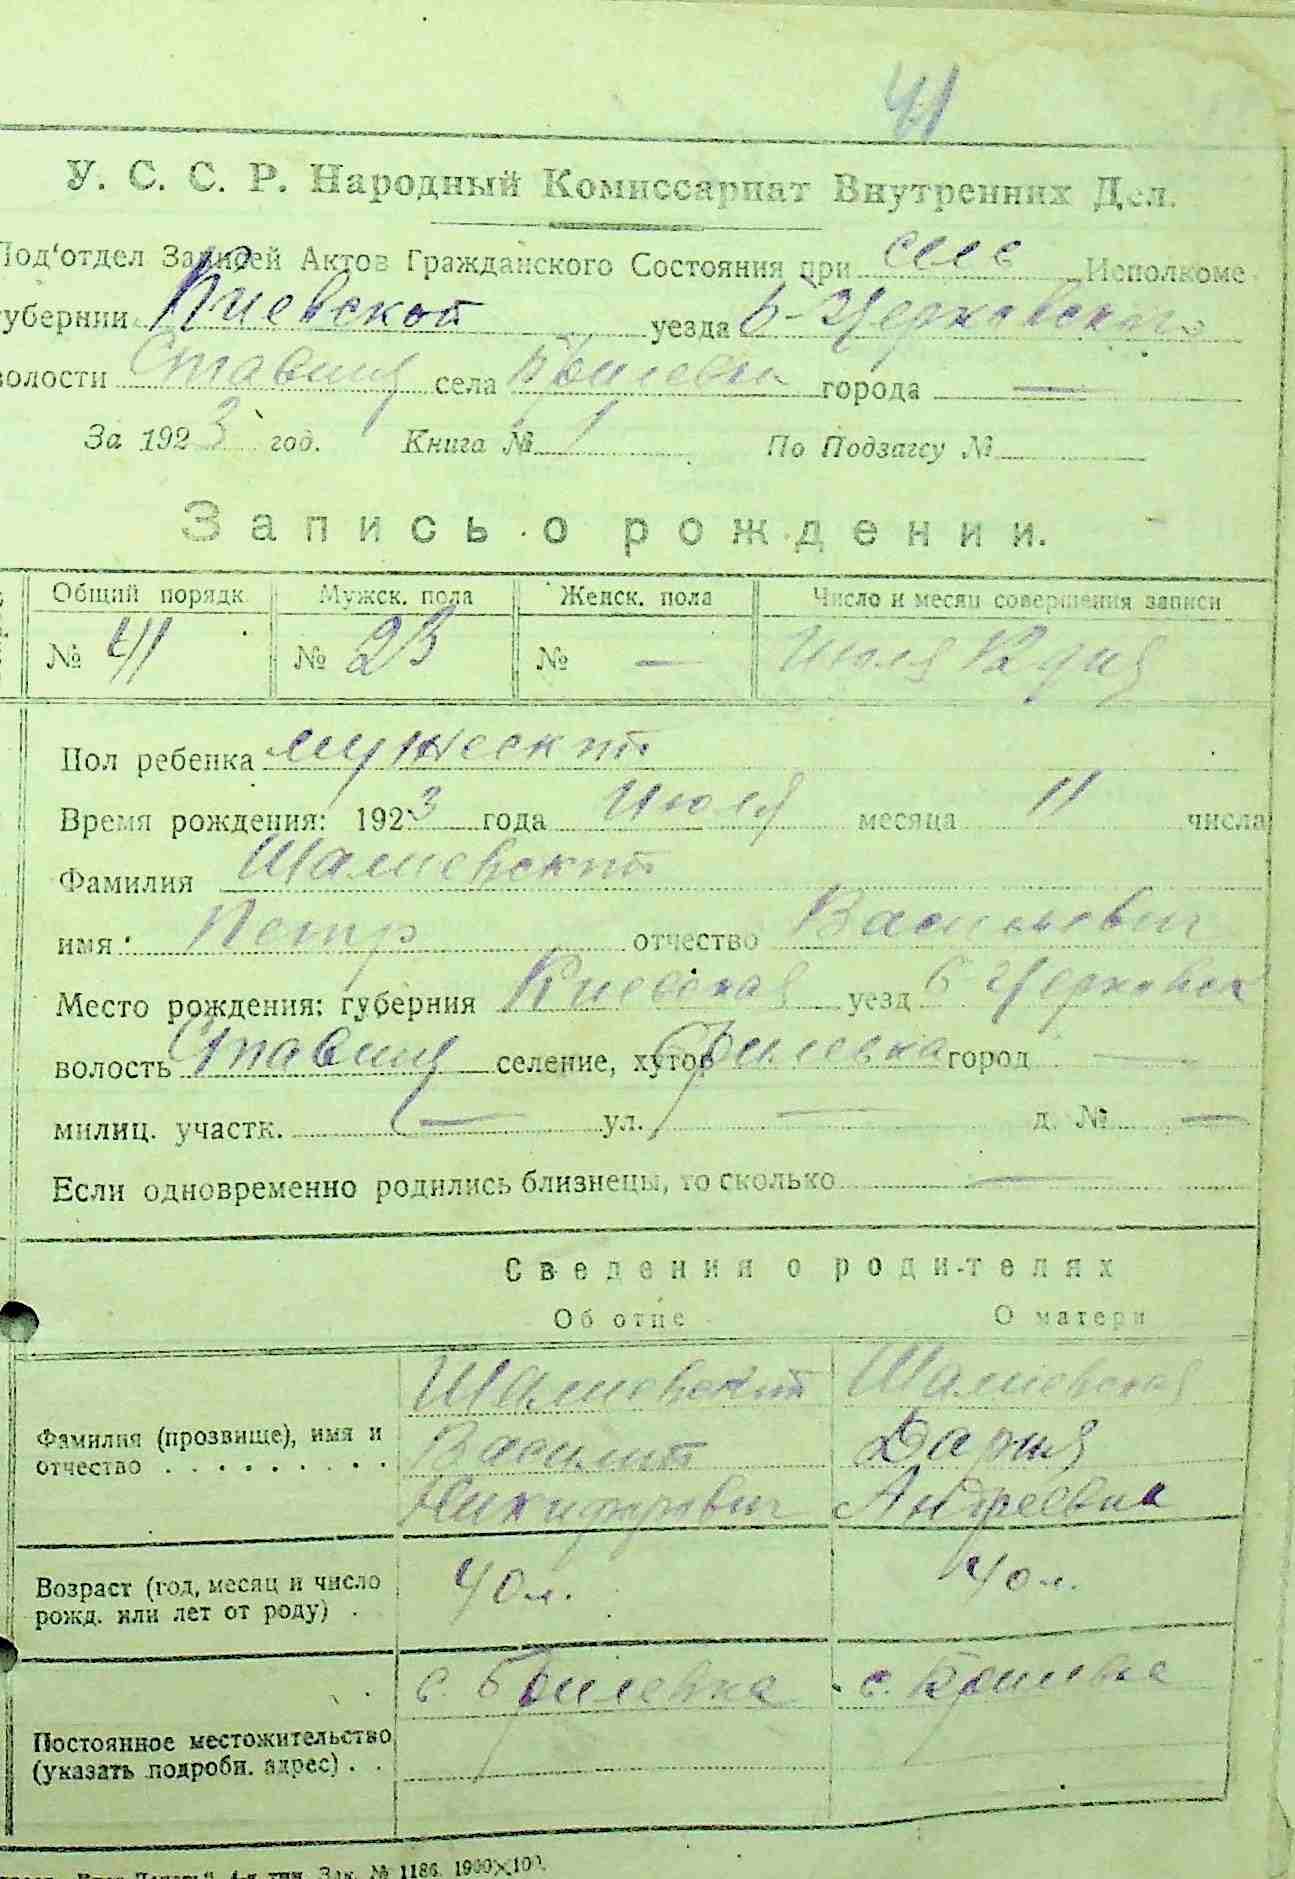 41
У. С. С. Р. Народный Комиссариат Внутренних Дел.
Под‘отдел Записей Актов Гражданского Состояния при селе Исполкоме
губернии Киевской уезда Б-Церковского
волости Ставищ села Брилевки города —
За 1923 год. Книга № 1 По Подзагсу №
Запись о рождении.
Общий порядк. Мужск. пола Женск. пола Число и месяц совершения записи
№ 41 № 23 № — Июля 12 дня
Пол ребенка мужеский
Время рождения: 1923 года Июля месяца 11 числа
Фамилия Шалиевский
имя Петр отчество Васильевич
Место рождения: губерния Киевская уезд Б Церковск
волость Ставищ селение, хутор Брилевка город —
милиц. участк. — ул. — д. № —
Если одновременно родились близнецы, то сколько —
Сведения о родителях
Об отце О матери
Фамилия (прозвище), имя и отчество . . . . . . . . .
Шалиевский
Василий
Никифорович
Шалиевская
Дария
Андреевна
Возраст (год, месяц и число рожд. или лет от роду) .
40 л. 40 л.
Постоянное местожительство (указать подробн. адрес) . .
с. Брилевка с. Брилевка
4-я тип. Зак. № 1186. 1900×100.